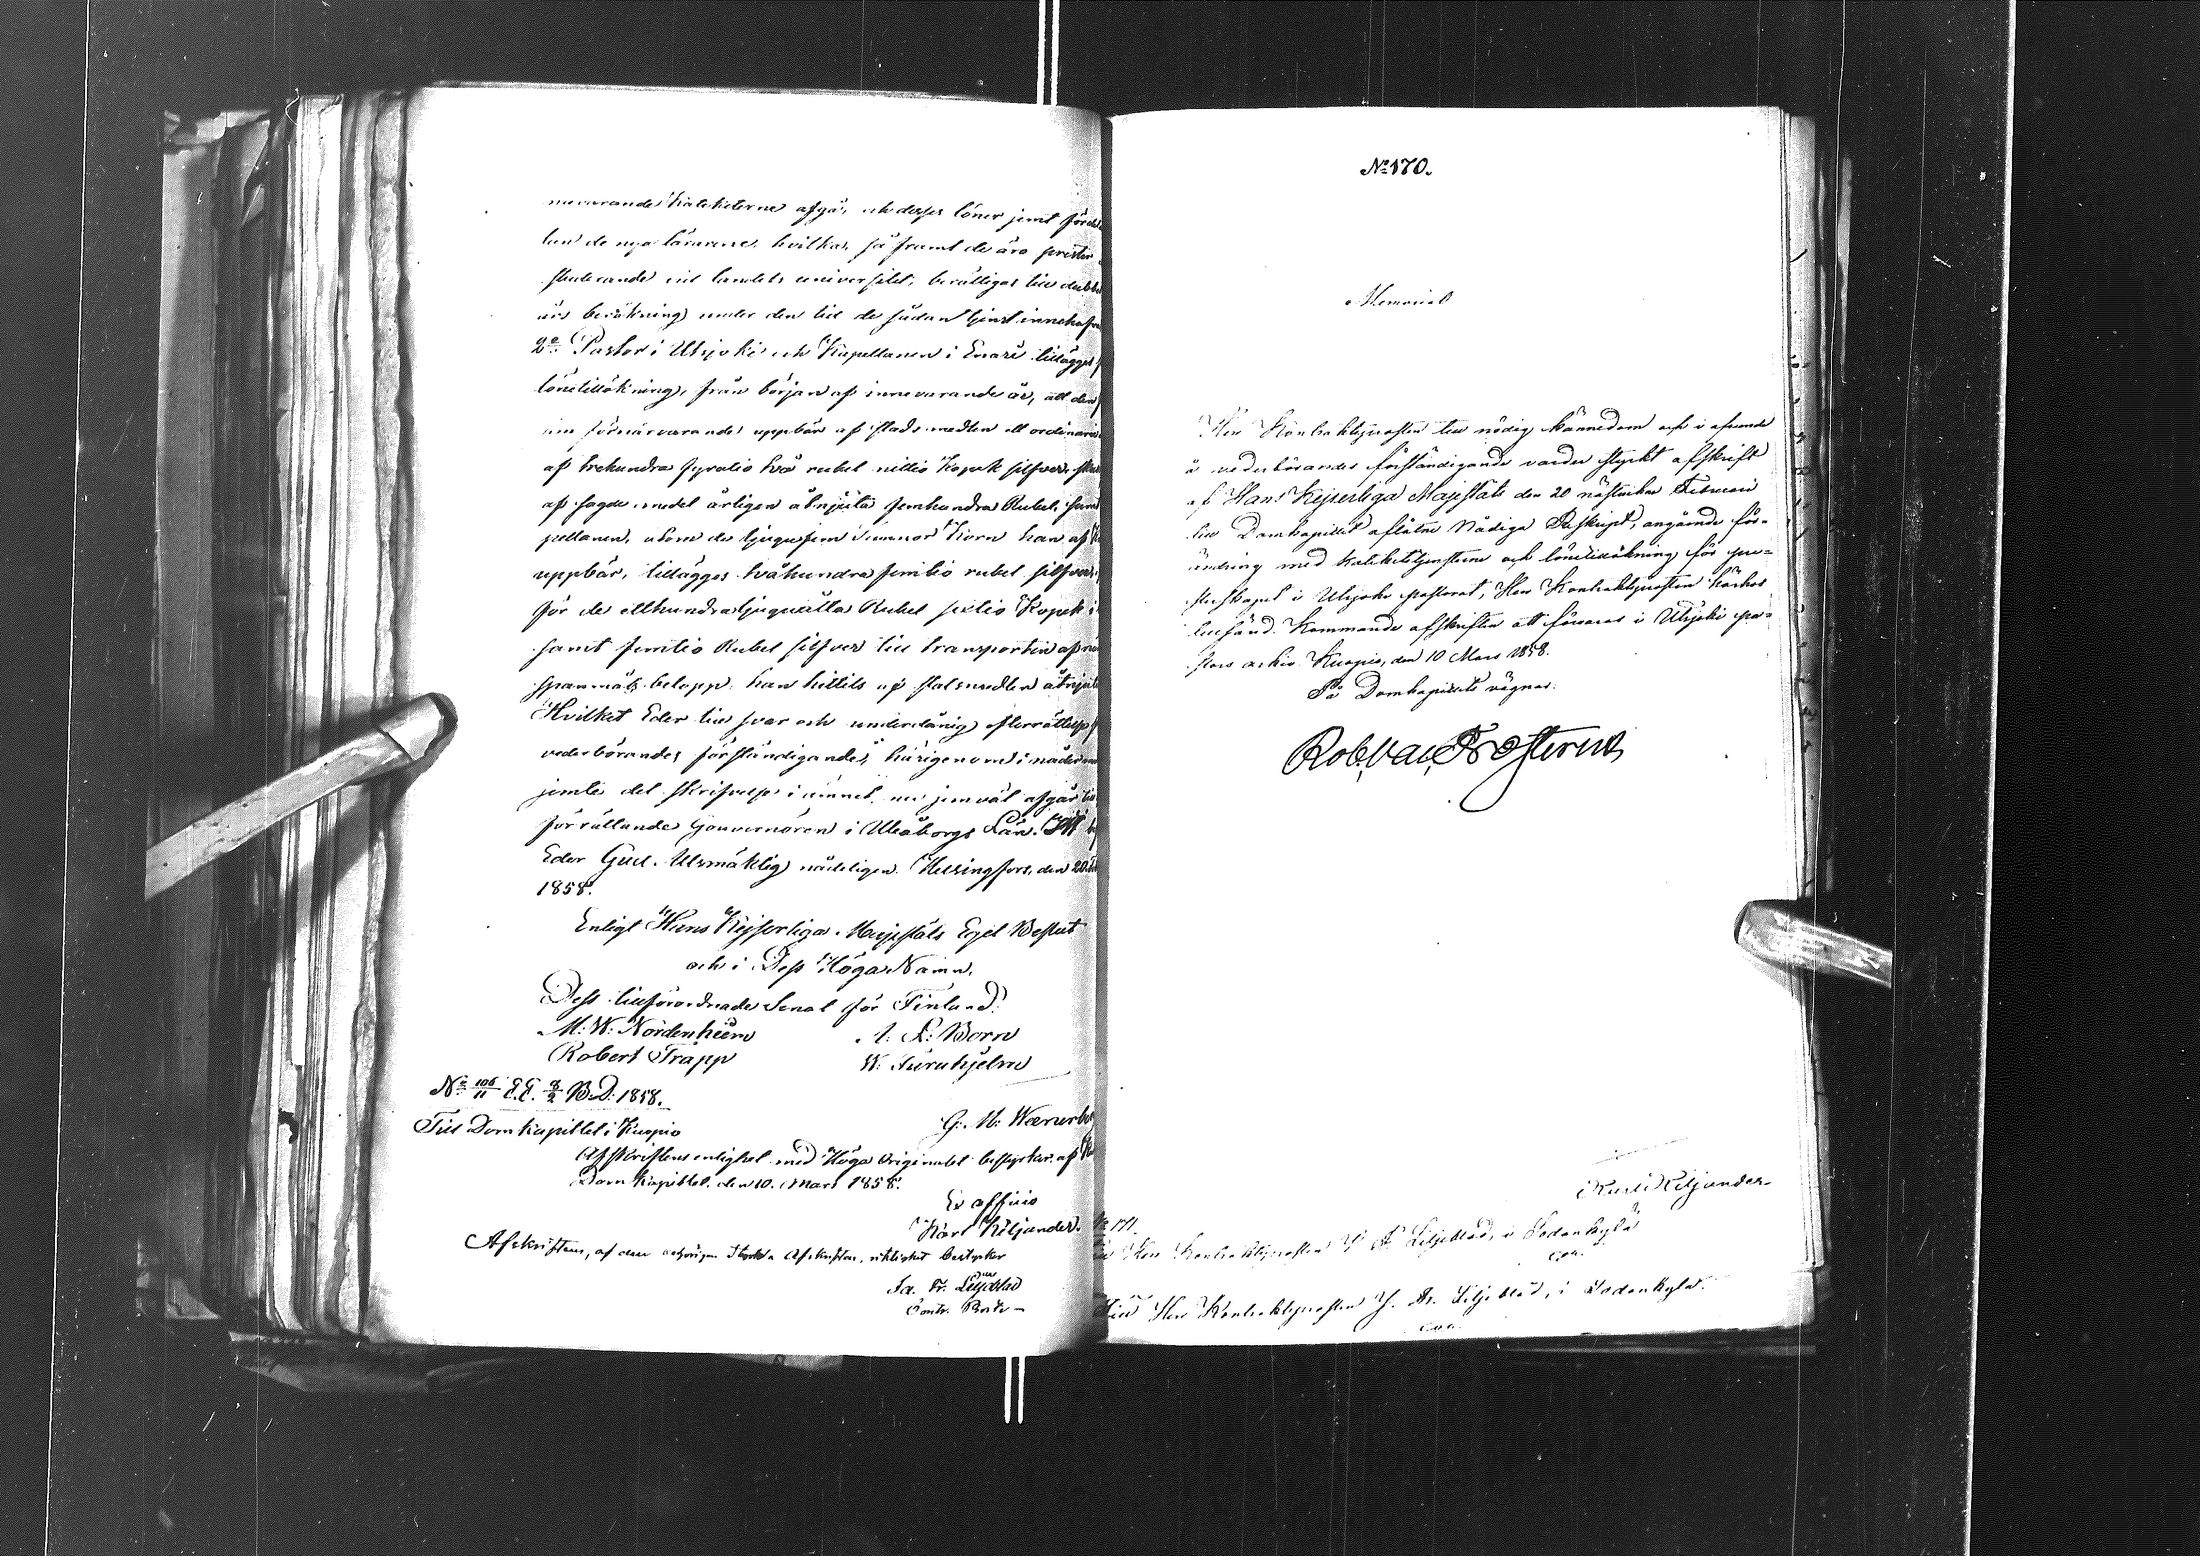 nuvarande Kateketerne afgå, och desses löner jemt förde
lan de nya lärarene, hvilka, så framt de äro prester
studerande vid landets universitet, berättigas till dubbel
års beräkning under den tid de sådan tjenst innehafva
2o Pastor i Utsjoki och Kapellanen i Enare tillägges
lönetillökning, från början af innevarande år, att den
förnärvarande uppbär af stadsmedlen ett ordinarie
af trekundra fyratio två rubel nittio Kopek silfver, skall
af sagde medel årligen åtnjuta femhundra Rubel, samt
pellanen, utom de tjugufem Tunnor Korn han af
uppbär, tillägges tvåhundra femtio rubel silfver,
för de etthundratjuguåtta Rubel sextio Kopek i
samt femtio Rubel silfver till transportin af
spanmåls belopp, han hittils af statsmedlen åtnjutit
Hvilket Eder till svar och underdånig efterrättelse
vederbörandes förståndigande, härigenom i nåder
jemte det skrifvelse i ämnet nu jemväl afgår till
förrättande Gouvernören i Uleåborgs Län.
Eder Gud Alsmäktig nådeligen. Helsingfors, den 20
1858.
Enligt Hans Kejserliga Majestäts Eget Beslut
och i Dess Höga Namn,
Dess tillförordnade Senat för Finland:
M. W. Nordenheim A. L. Born
Robert Trapp W. Furuhjelm
No 106/11 E.E. 8/2 B.D. 1858.
G. W. Wærnerb
Till Domkapitlet i Kuopio
Afskriftens enlighet med Höga Originalet bestyrkar af
Domkapitlet, den 10. Mars 1858.
Ex officio
Karl Kiljander.
Afskriftens, af den Afskriften, riktighet bestyrker
Ja. Fr. Liljeblad
Contr. Prost
No 170.
Memorial
Herr Kontraktsprosten till nödig kännedom och i afseende
å vederbörandes förståndigande varder styrkt afskrift
af Hans Kejserliga Majestäts den 20 nästvikne Februari
till Domkapitlet aflåtne Nådiga Reskript, angående för-
ändring med Kateketstjensterne och lönetillökning för pre-
sterskapet i Utsjoki pastorat, Herr Kontraktsprosten härhos
tillsänd. Kommande afskriften att förvaras i Utsjoki pa-
stors arkiv. Kuopio, den 10 Mars 1858.
På Domkapitlets vägnar:
Rob. Val. Frosterus
Karl Kiljander
No 171.
Till Herr Kontraktsprosten J. F. Liljeblad, i Sodankylä
Till Herr Kontraktsprosten J. Fr. Liljeblad, i Sodankylä.